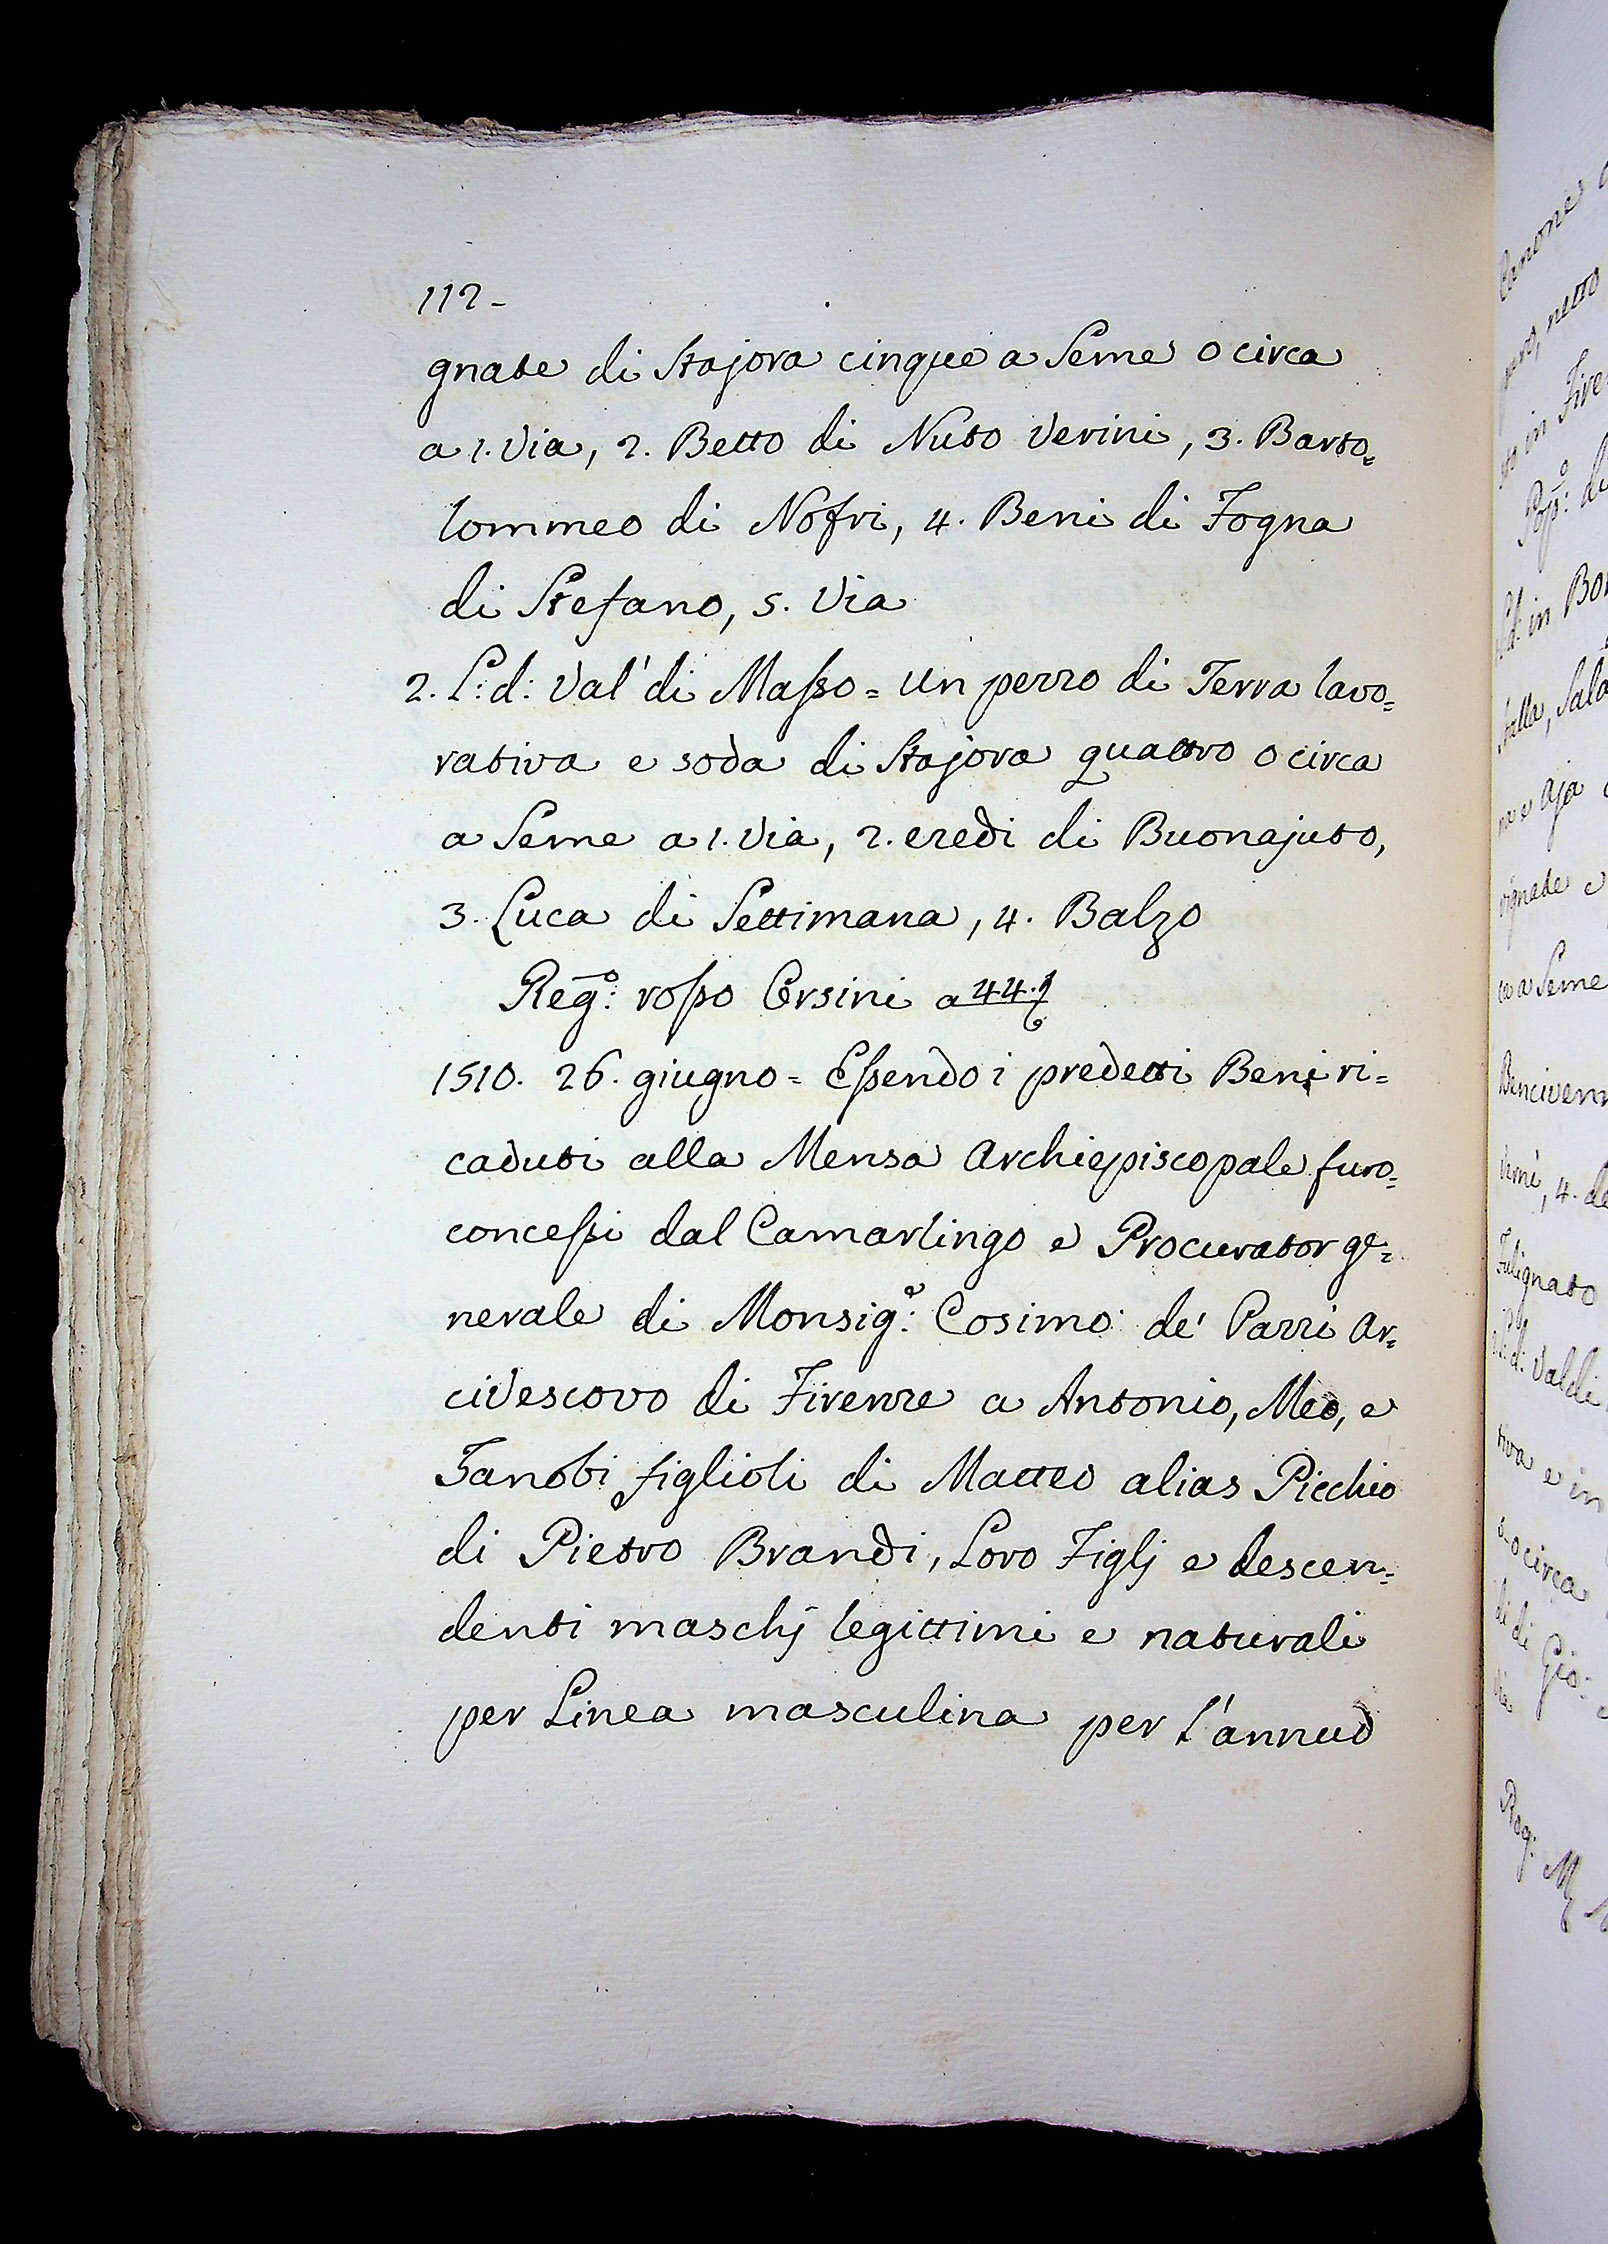 112-
gnate di Stajora cinque a Seme o circa
a 1. Via, 2. Betto di Nuto Verini, 3. Barto=
lommeo di Nofri, 4. Beni di Fogna
di Stefano, 5. Via
2. L: d: Val' di Masso = un pezzo di Terra lavo=
rativa e soda di Stajora quattro o circa
a Seme a 1. Via, 2. eredi di Buonajuto,
3. Luca di Settimana, 4. Balzo
Reg.º: rosso Orsini a 44.
1510. 26. giugno = Essendo i predetti Beni ri=
caduti alla Mensa Archiepiscopale furo=
concessi dal Camarlingo e Procurator ge=
nerale di Monsig.e: Cosimo de' Pazzi Ar=
civescovo di Firenze a Antonio, Meo, e
Zanobi figlioli di Matteo alias Picchio
di Pietro Brandi, Loro Figlj e descen=
denti maschj legittimi e naturali
per Linea masculina per l'annuo
Canone
netto
in Fire
Pop.º: di
in Bo
Stalla, Sala
e Aja
vignate e
a Seme
Bencivenn
4. de
Fulignato
Val di
tiva e in
o circa
di Gio:
Reg: